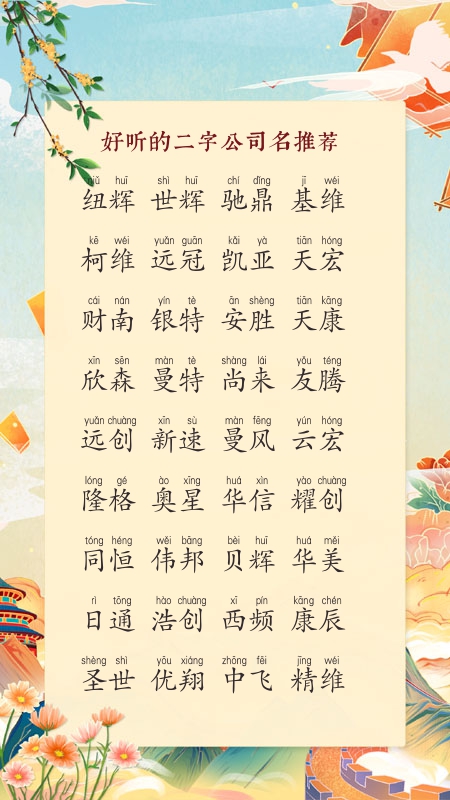 好听的二字公司名推荐
niǔ huī shì huī chí dǐng jī wéi
纽辉 世辉 驰鼎 基维
kē wéi yuǎn guān kǎi yà tiān hóng
柯维 远冠 凯亚 天宏
cái nán yín tè ān shèng tiān kāng
财南 银特 安胜 天康
xīn sēn màn tè shàng lái yǒu téng
欣森 曼特 尚来 友腾
yuǎn chuàng xīn sù màn fēng yún hóng
远创 新速 曼风 云宏
lóng gé ào xīng huá xìn yào chuàng
隆格 奥星 华信 耀创
tóng héng wěi bāng bèi huī huá měi
同恒 伟邦 贝辉 华美
rì tōng hào chuàng xī pín kāng chén
日通 浩创 西频 康辰
shèng shì yōu xiáng zhōng fēi jīng wéi
圣世 优翔 中飞 精维